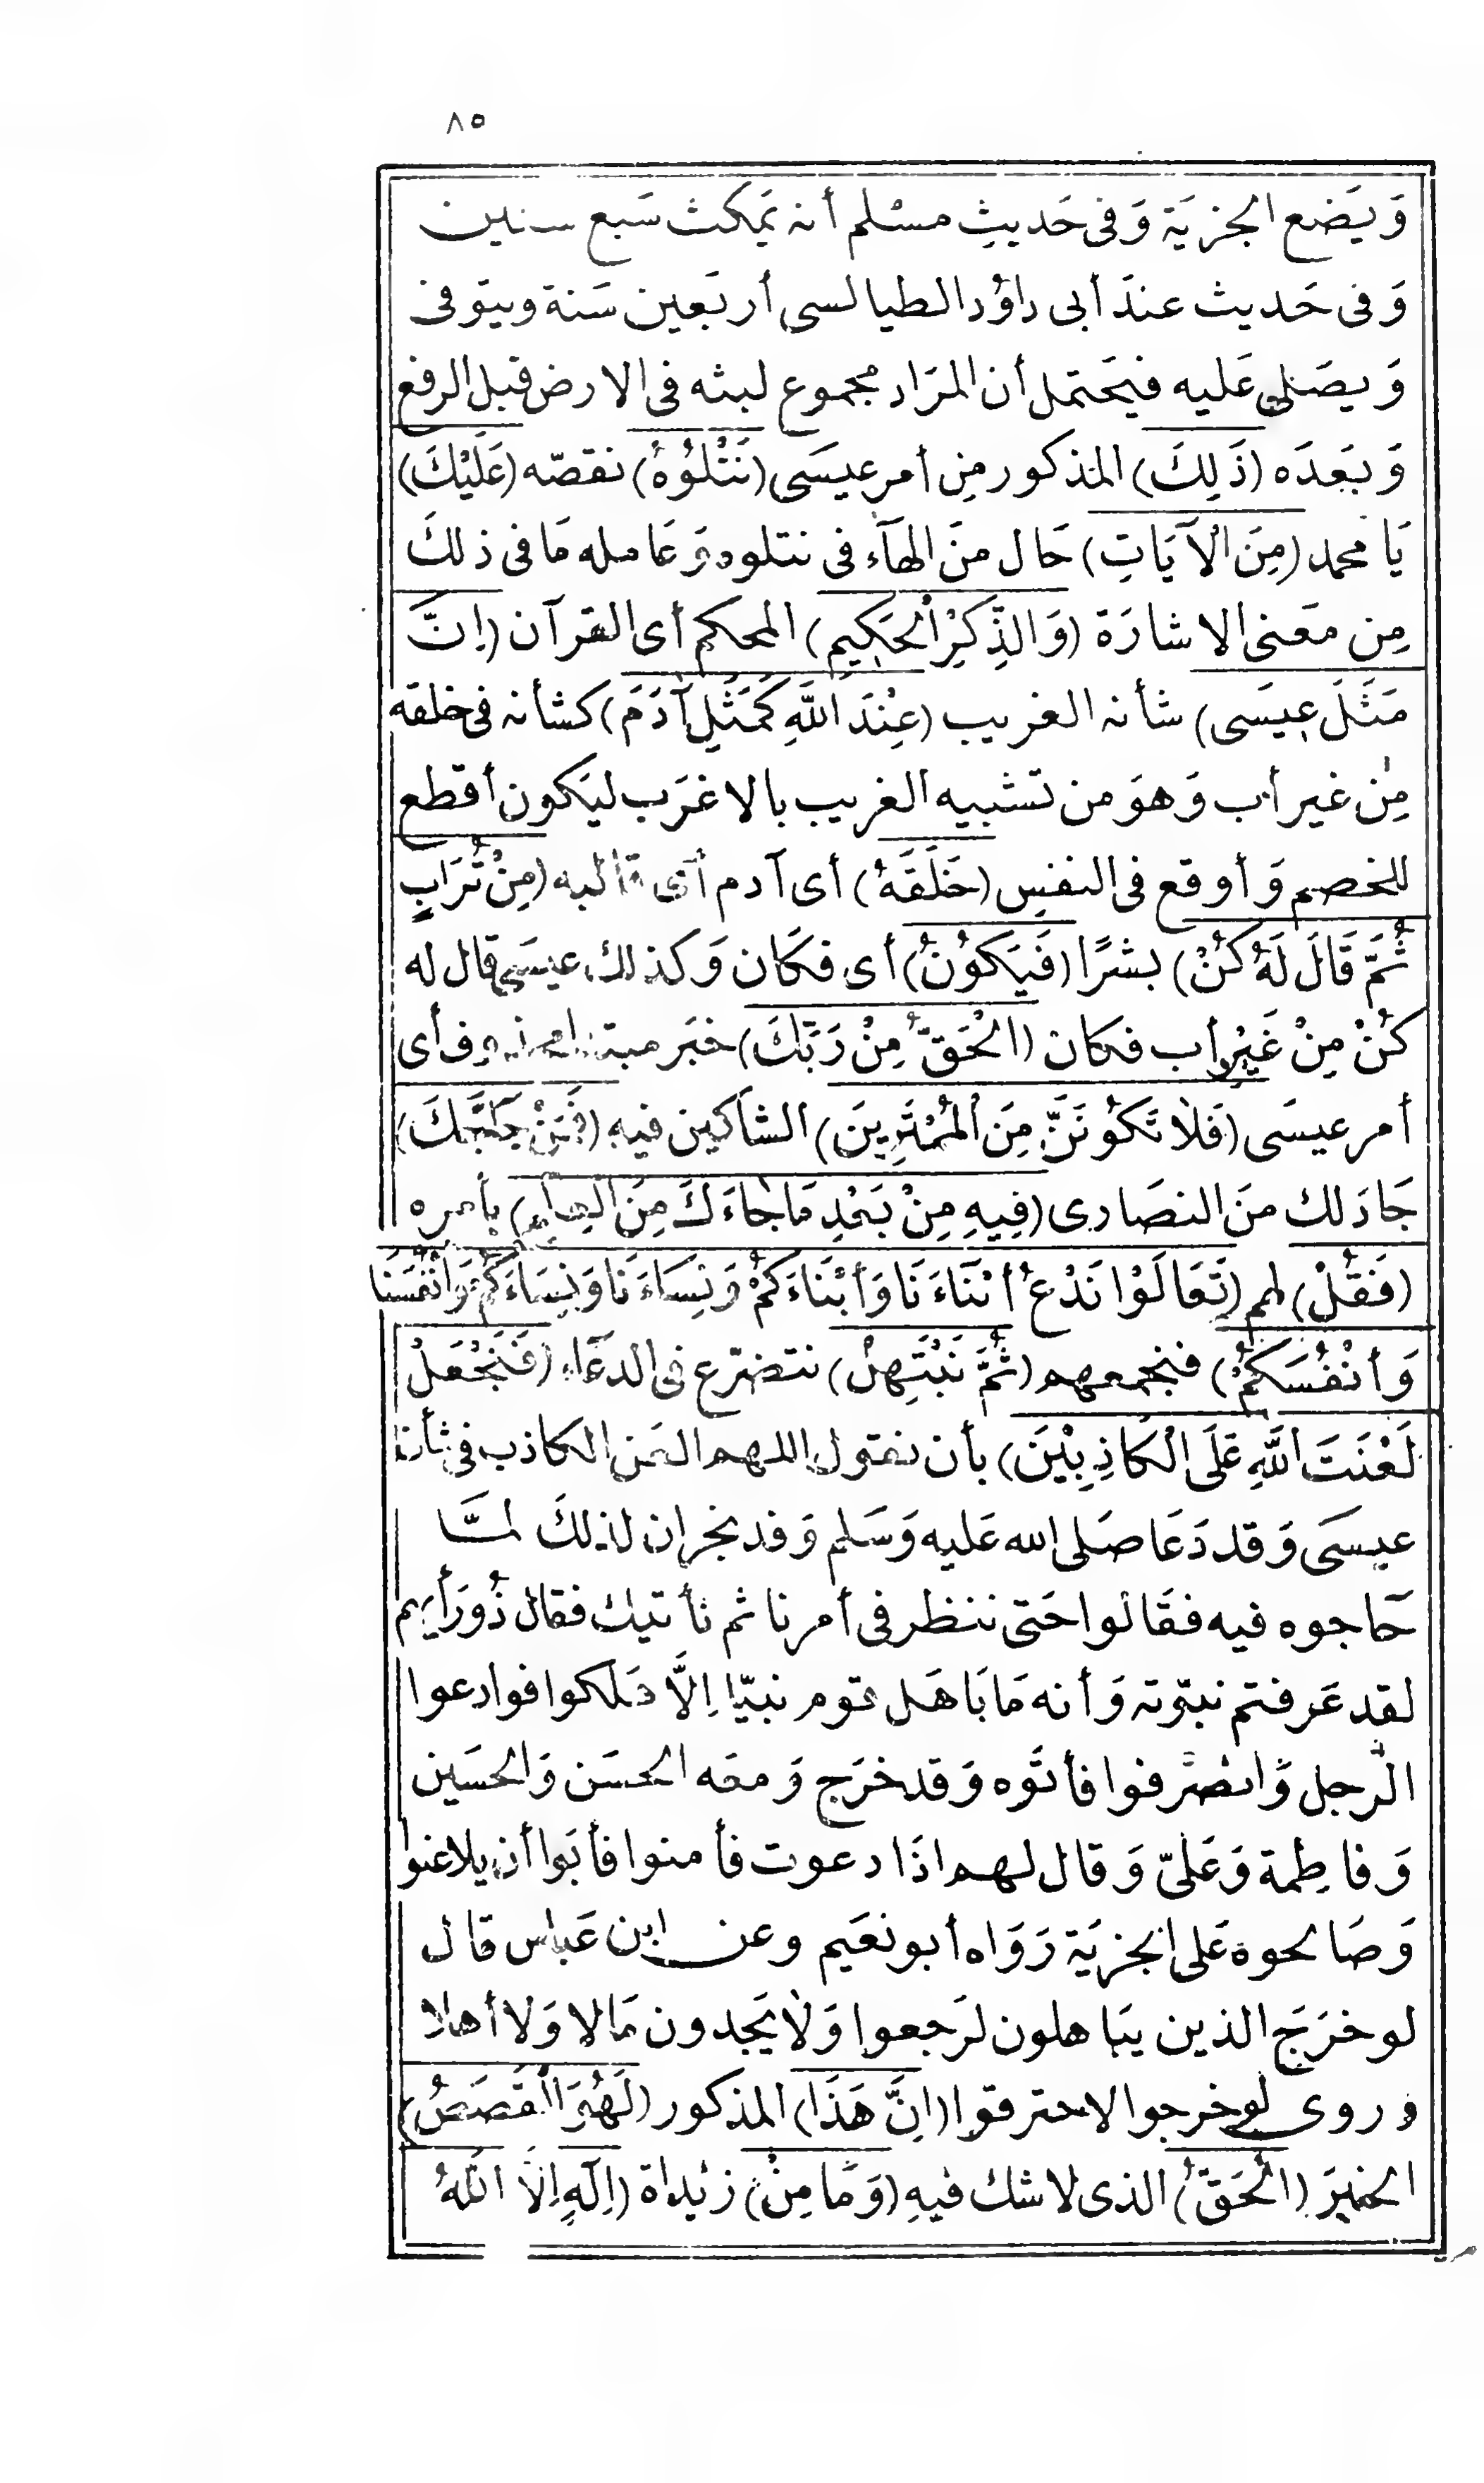 ٨٥
وَيَضع الجزيَة وَفى حَديثِ مسْلم أنه يَمكث سَبع سنين
وَفى حَديث عندَ أبى داوُد الطيالسى أربَعين سَنة ويتوفى
وَيصَلى عَليه فيَحتمل أن المرَاد مجموع لبثه فى الارض قبل الرفع
وَبَعدَه (ذَلِكَ) المذكور مِن أمر عيسَى (نَتْلُوُهُ) نقصّه (عَلَيْكَ)
يَا محمد (مِنَ الْآيَاتِ) حَال منَ الهآء فى نتلوه وَعَامله مَا فى ذلكَ
مِن معَنى الاشارَة (وَالذِّكِرْ الْحَكِيمِ) المحكم أى القرآن (اِنَّ
مَثَلَ عِيسَى) شأنه الغريب (عِنْدَ اللَّهِ كَمَثَلِ آدَمَ) كشأنه فى خلقه
مِن غير أب وَهوَ من تشبيه الغريب بالاغرَب ليَكون أقطع
للخصم وَأوقع فى النفسِ (خَلَقَهُ) أى آدم أى قالبه (مِنْ تُرَابٍ
ثُمَّ قَالَ لَهُ كُنْ) بشرًا (فَيَكوُنُ) أى فكَان وَكذلك عيسَى قال له
كُنْ مِنْ غَيْرِ أب فكان (الْحَقُّ مِنْ رَبِّكَ) خبَر مبتدا محذوف أى
أمر عيسَى (فَلَا تَكوُنَنَّ مِنَ الْمُمْتَرِينَ) الشاكين فيه (فَمَنْ حَاجَّكَ)
جَادَلك منَ النصَارى (فِيهِ مِنْ بَعْدِ مَا جَاءَكَ مِنَ الْعِلْمِ) بأمره
(فَقُلْ) لهم (تَعَالَوْا نَدْعُ أبْنَاءَنَا وَأبْنَاءَكُمْ وَنِسَاءَنَا وَنِسَاءَكُمْ وَأنْفُسَنَا
وَأنْفُسَكُمْ) فنجمعهم (ثُمَّ نَبْتَهِلْ) نتضرّع فى الدعَاء (فَنَجْعَلْ
لَعْنَتَ اللَّهِ عَلَى الْكَاذِبِيْنَ) بأن نقول اللهم العَن الكاذب فى شأن
عيسَى وَقد دَعَا صَلى الله عَليه وَسَلم وَفد نجران لذلكَ لمَّا
حَاجوه فيه فقَالوا حَتى ننظر فى أمرنا ثم نأتيك فقال ذُو رَأيهم
لقد عَرفتم نبوّته وَأنه مَا بَاهَل قوم نبيّا اِلَّا هَلكوا فوادعوا
الرجل وَانصَرفوا فأتَوه وَقد خرَج وَمعَه الحسَن وَالحسَين
وَفاطِمة وَعَلىّ وَقال لهم اذَا دعوت فأمنوا فأبَوا أن يلاعنوا
وَصَالحوه عَلى الجزيَة رَوَاه أبو نعَيم وعن ابن عَباس قال
لو خرَجَ الذين يبَاهلون لرَجعوا وَلَا يَجدون مَالا وَلا أهلا
وروى لو خرجوا لاحترقوا (اِنَّ هَذَا) المذكور (لَهُوَ الْقَصَصُ)
الخبرَ (الْحَقُّ) الذى لا شك فيهِ (وَمَا مِنْ) زيداة (اِلَهٍ اِلَّا اللَّهُ